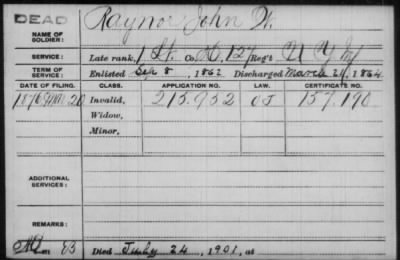 DEAD
Raynor John W.
NAME OF SOLDIER:
SERVICE: Late rank, 1 Lt. Co. D, 127 Reg't N Y Inf
TERM OF SERVICE: Enlisted Sep 8, 1862 Discharged March 24, 1864
DATE OF FILING. CLASS. APPLICATION NO. LAW. CERTIFICATE NO.
1876 Mar 20 Invalid, 215.952 O J 157.190
Widow,
Minor,
ADDITIONAL SERVICES:
REMARKS:
83 Died July 24, 1901, at